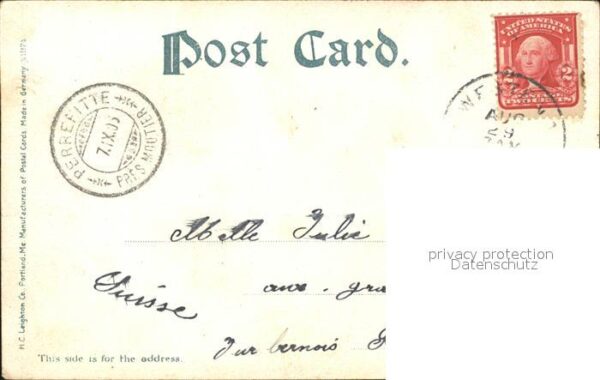 Post Card.
UNITED STATES
OF AMERICA
2
PERREFITTE
7.IX.05
PRÈS MOUTIER
AUG
29
Melle Julie
Suisse
aux-gra
Jur bernois
privacy protection
Datenschutz
This side is for the address.
H.C. Leighton Co. Portland, Me. Manufacturers of Postal Cards. Made in Germany.